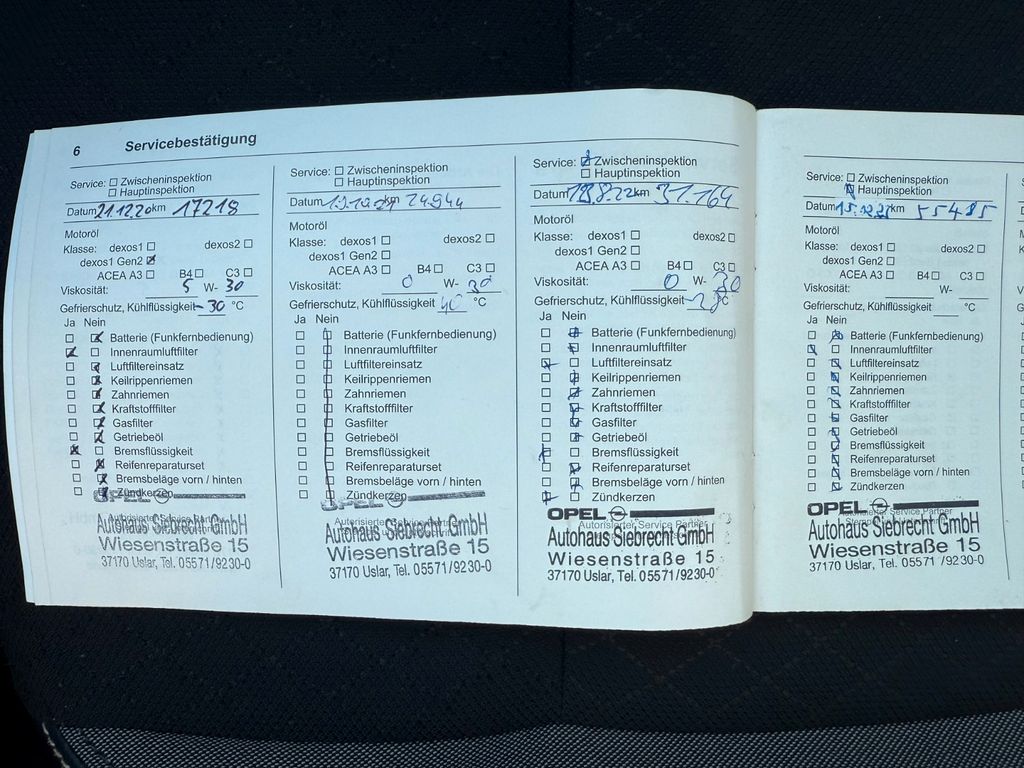 6 Servicebestätigung
Service: Zwischeninspektion
Hauptinspektion
Datum 21.12.20 km 17218
Motoröl
Klasse: dexos1 dexos2
dexos1 Gen2
ACEA A3 B4 C3
Viskosität: 5 W- 30
Gefrierschutz, Kühlflüssigkeit -30 °C
Ja Nein
Batterie (Funkfernbedienung)
Innenraumluftfilter
Luftfiltereinsatz
Keilrippenriemen
Zahnriemen
Kraftstofffilter
Gasfilter
Getriebeöl
Bremsflüssigkeit
Reifenreparaturset
Bremsbeläge vorn / hinten
Zündkerzen
OPEL
Autohaus Siebrecht GmbH
Wiesenstraße 15
37170 Uslar, Tel. 05571/9230-0
Service: Zwischeninspektion
Hauptinspektion
Datum km 24.944
Motoröl
Klasse: dexos1 dexos2
dexos1 Gen2
ACEA A3 B4 C3
Viskosität: 0 W- 30
Gefrierschutz, Kühlflüssigkeit 40 °C
Ja Nein
Batterie (Funkfernbedienung)
Innenraumluftfilter
Luftfiltereinsatz
Keilrippenriemen
Zahnriemen
Kraftstofffilter
Gasfilter
Getriebeöl
Bremsflüssigkeit
Reifenreparaturset
Bremsbeläge vorn / hinten
Zündkerzen
OPEL
Autorisierter Service Partner
Autohaus Siebrecht GmbH
Wiesenstraße 15
37170 Uslar, Tel. 05571/9230-0
Service: Zwischeninspektion
Hauptinspektion
Datum 18.8.22 km 31.164
Motoröl
Klasse: dexos1 dexos2
dexos1 Gen2
ACEA A3 B4 C3
Viskosität: 0 W- 30
Gefrierschutz, Kühlflüssigkeit °C
Ja Nein
Batterie (Funkfernbedienung)
Innenraumluftfilter
Luftfiltereinsatz
Keilrippenriemen
Zahnriemen
Kraftstofffilter
Gasfilter
Getriebeöl
Bremsflüssigkeit
Reifenreparaturset
Bremsbeläge vorn / hinten
Zündkerzen
OPEL
Autorisierter Service Partner
Autohaus Siebrecht GmbH
Wiesenstraße 15
37170 Uslar, Tel. 05571/9230-0
Service: Zwischeninspektion
Hauptinspektion
Datum km 55485
Motoröl
Klasse: dexos1 dexos2
dexos1 Gen2
ACEA A3 B4 C3
Viskosität: W-
Gefrierschutz, Kühlflüssigkeit °C
Ja Nein
Batterie (Funkfernbedienung)
Innenraumluftfilter
Luftfiltereinsatz
Keilrippenriemen
Zahnriemen
Kraftstofffilter
Gasfilter
Getriebeöl
Bremsflüssigkeit
Reifenreparaturset
Bremsbeläge vorn / hinten
Zündkerzen
OPEL
Autorisierter Service Partner
Autohaus Siebrecht GmbH
Wiesenstraße 15
37170 Uslar, Tel. 05571/9230-0